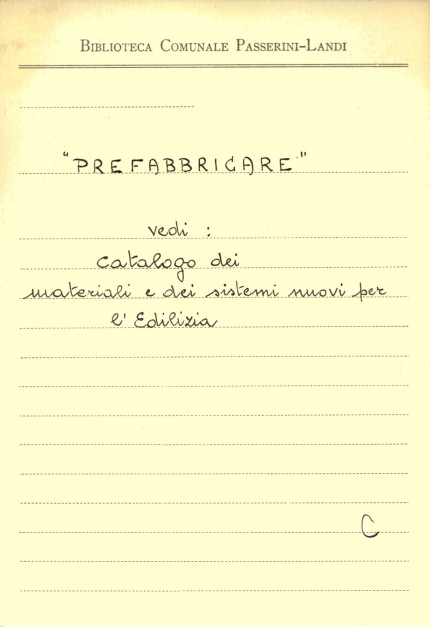 BIBLIOTECA COMUNALE PASSERINI-LANDI
"PREFABBRICARE"
vedi :
catalogo dei
materiali e dei sistemi nuovi per
l'Edilizia
C